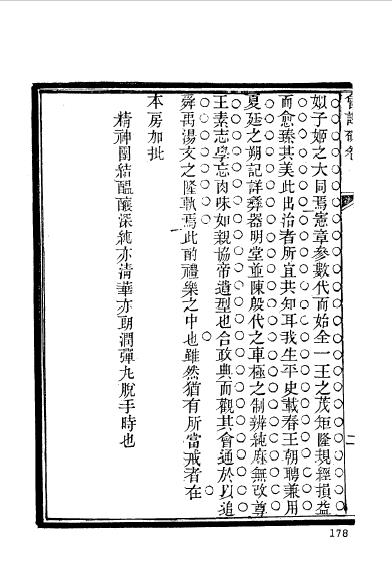 會試硃卷
姒子姬之大同焉憲章參數代而始全一王之茂矩隆規經損益
而愈臻其美此出治者所宜共知耳我生平史載春王朝聘兼用
夏廷之朔記詳彝器明堂並陳殷代之車極之制辨純麻無改尊
王素志學忘肉味如親協帝遺型也合政典而觀其會通於以追
舜禹湯文之隆軌焉此酌禮樂之中也雖然猶有所當戒者在
本房加批
精神團結醞釀深純亦清華亦朝潤彈丸脫手時也
178